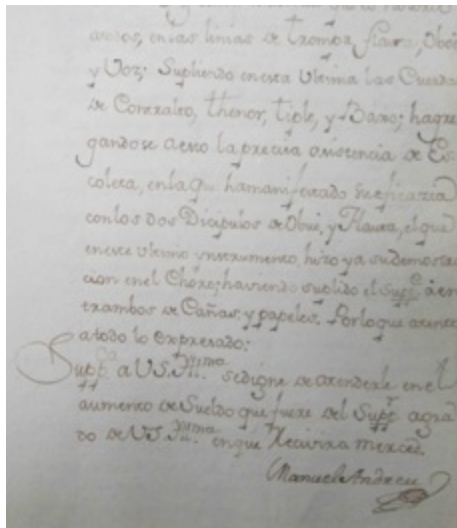 arosos, en las linias de trompa, flauta, Oboe
y Voz; Supliendo en esta Ultima las Cuerdas
de Contralto, thenor, tiple, y Baxo; hagre
gandose a esto la precisa asistencia de Es
coleta, en la que ha manifestado su eficazia
con los dos Dicipulos de Obue, y Flauta, el que
en este ultimo ynstrumento, hizo ya su demostra
cion en el Choro; haviendo suplido el Supp.te a en
trambos de Cañas, y papeles. Por lo que atento
a todo lo expresado:
Supp.ca a US. Yll.ma se digne de atenderle en el
aumento de Sueldo que fuere del Supp.r agra
do de US. Yll.ma en que Recivira merced.
Manuel Andreu